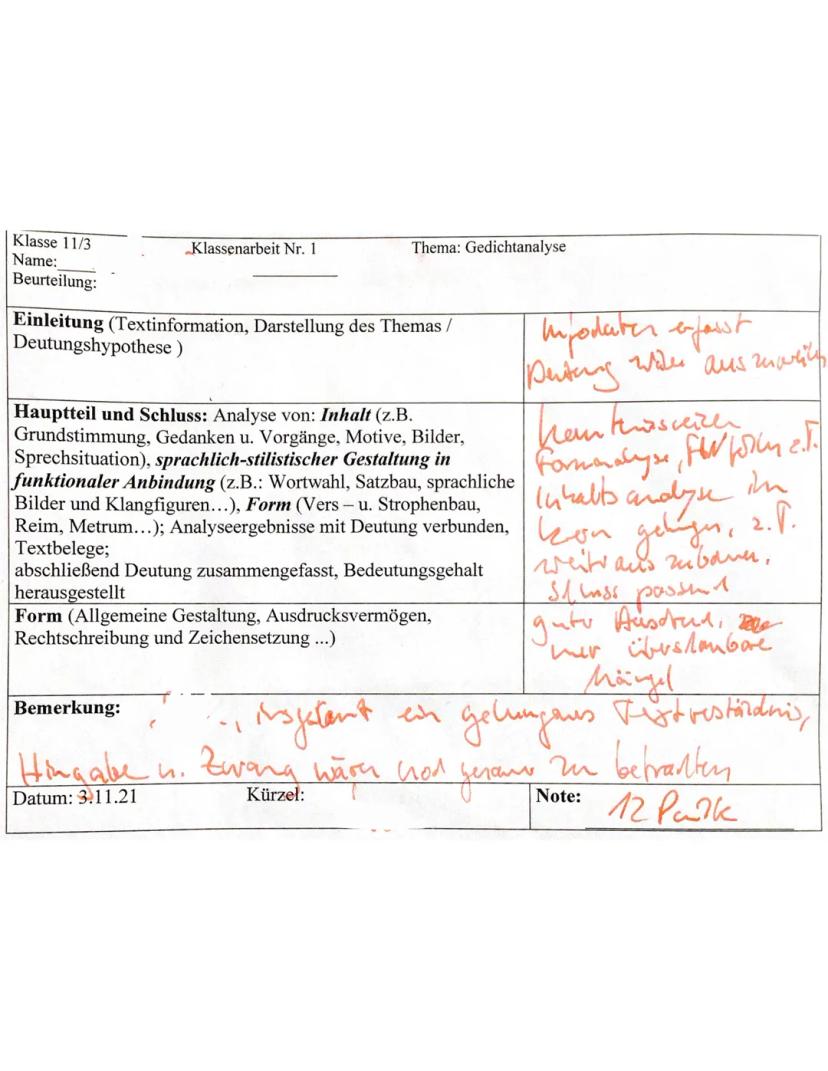 Klasse 11/3 Klassenarbeit Nr. 1 Thema: Gedichtanalyse
Name:
Beurteilung:
Einleitung (Textinformation, Darstellung des Themas /
Deutungshypothese )
erfasst
Deutung
Hauptteil und Schluss: Analyse von: Inhalt (z.B.
Grundstimmung, Gedanken u. Vorgänge, Motive, Bilder,
Sprechsituation), sprachlich-stilistischer Gestaltung in
funktionaler Anbindung (z.B.: Wortwahl, Satzbau, sprachliche
Bilder und Klangfiguren…), Form (Vers – u. Strophenbau,
Reim, Metrum…); Analyseergebnisse mit Deutung verbunden,
Textbelege;
abschließend Deutung zusammengefasst, Bedeutungsgehalt
herausgestellt
Formanalyse, z.T.
Inhaltsanalyse im
Kern gelungen, z.T.
weiter auszubauen,
Schluss passend
Form (Allgemeine Gestaltung, Ausdrucksvermögen,
Rechtschreibung und Zeichensetzung ...)
guter Ausdruck,
nur überschaubare
Mängel
Bemerkung: insgesamt ein gelungenes Textverständnis,
Hingabe u. Zwang wären noch genauer zu betrachten
Datum: 3.11.21 Kürzel: Note: 12 Punkte